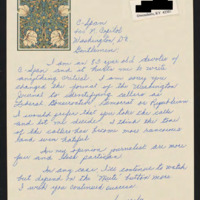 C-Span
400 N. Capitol
Washington, DC
Gentlemen:
I am an 83 year devotee of
C-Span and it bothers me to write
anything critical. I am sorry you
changed the format of the Washington
Journal to identifying callers as
Liberal Conservative, Democrat or Republican
I would prefer that you take the calls
and let me decide. I think the tone
of the callers has become more rancorous
and hateful.
In my opinion journalist are more
fair and less partisan.
In any case I'll continue to watch
but depend on the "Mute" button more
I wish you continued success.
Sincerely